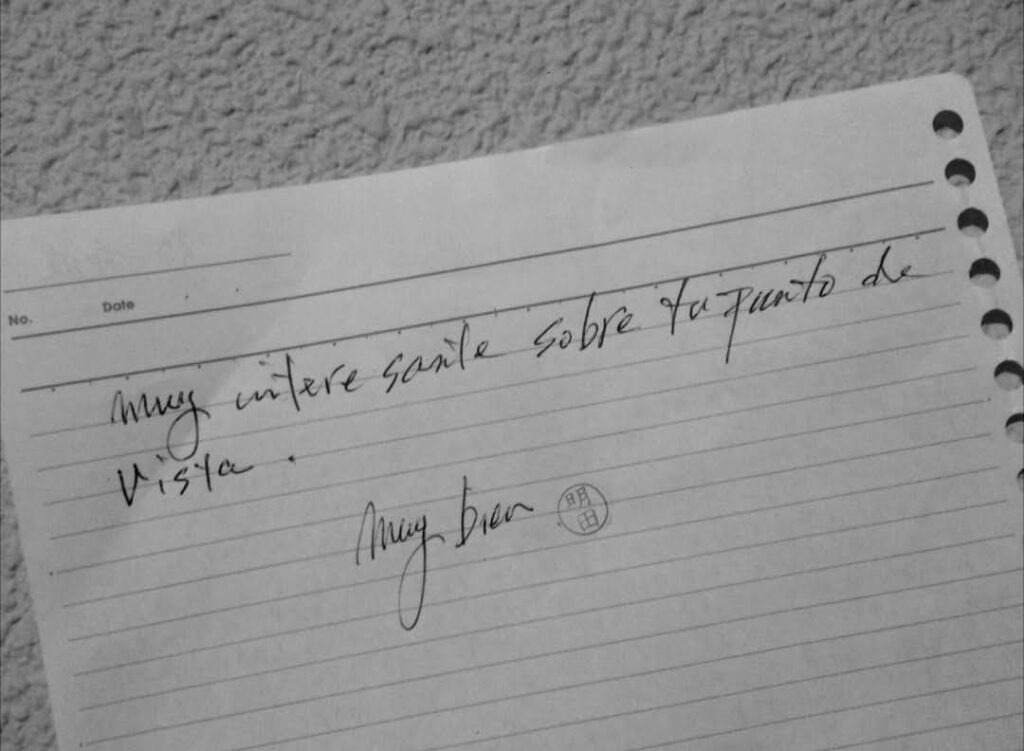 No.
Date
muy interesante sobre tu punto de
vista.
Muy bien
明
田